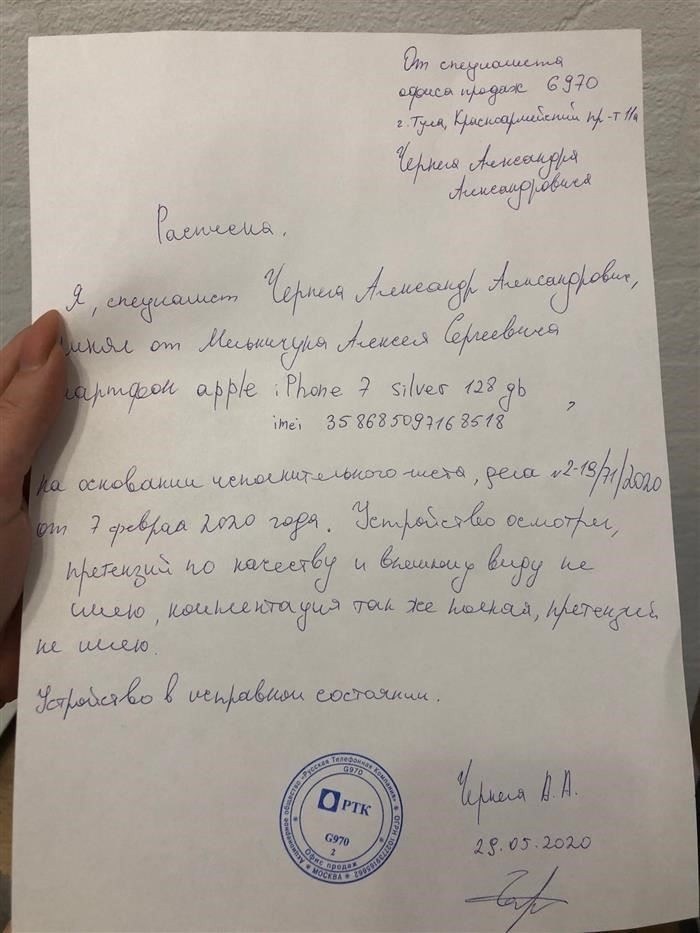 От специалиста
офиса продаж G970
г. Тула, Красноармейский пр-т 11а
Чернега Александра
Александровича
Расписка.
Я, специалист Чернега Александр Александрович,
инял от Мельничука Алексея Сергеевича
артфон apple iPhone 7 silver 128 gb
imei 358685097168518 ,
на основании исполнительного листа, дела №2-19/71/2020
от 7 февраа 2020 года. Устройство осмотрел,
претензий по качеству и внешнему виду не
имею, комплектация так же полная, претензий
не имею.
Устройство в исправном состоянии.
Акционерное общество «Русская Телефонная Компания»
G970
РТК
G970
2
Офис продаж
МОСКВА
Чернега А.А.
29.05.2020